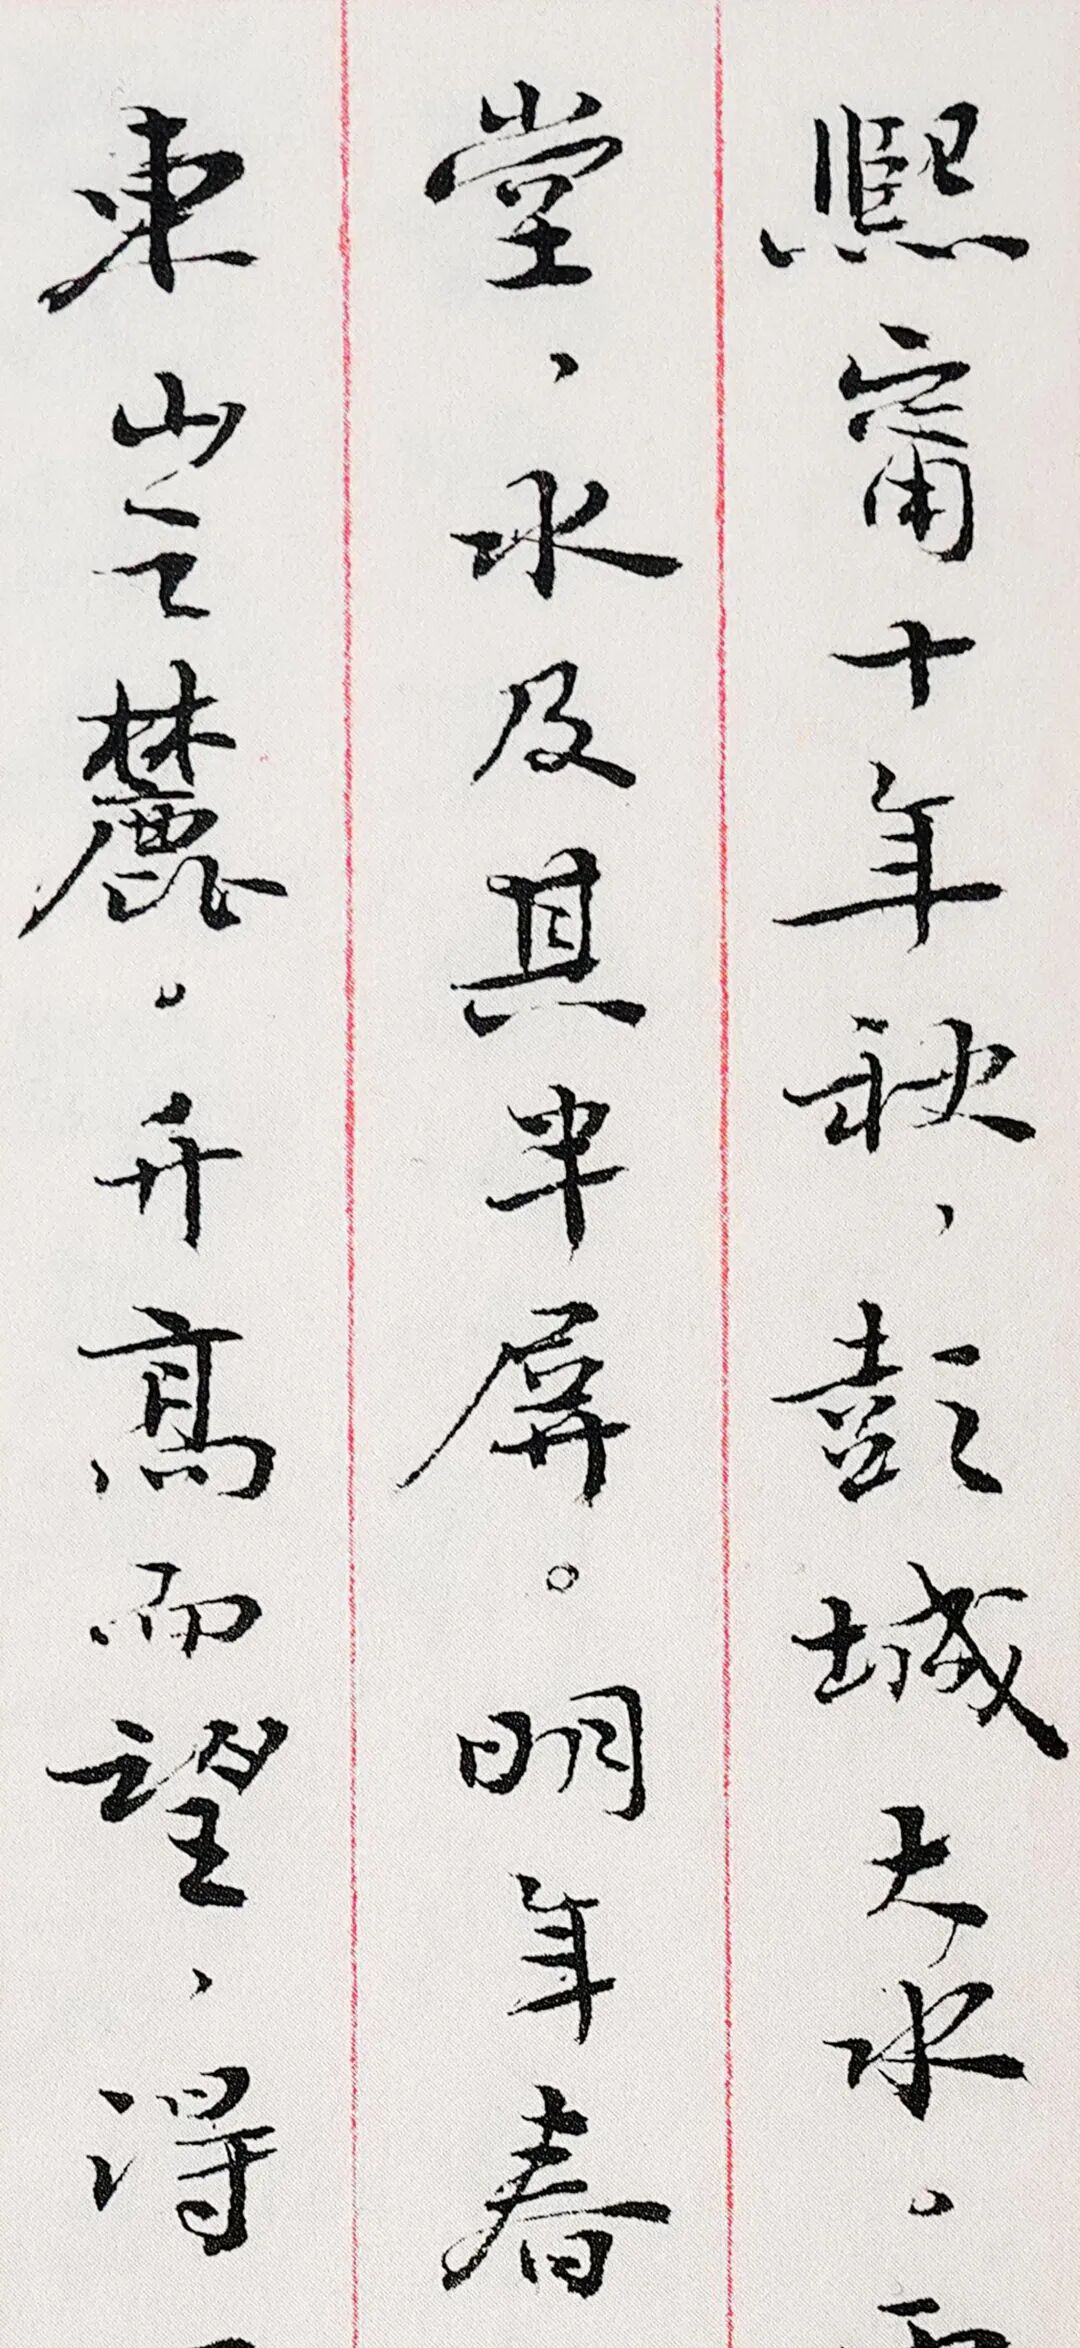 熙甯十年秋，彭城大水。
堂，水及其半屏。明年春
東山之麓。升高而望，得